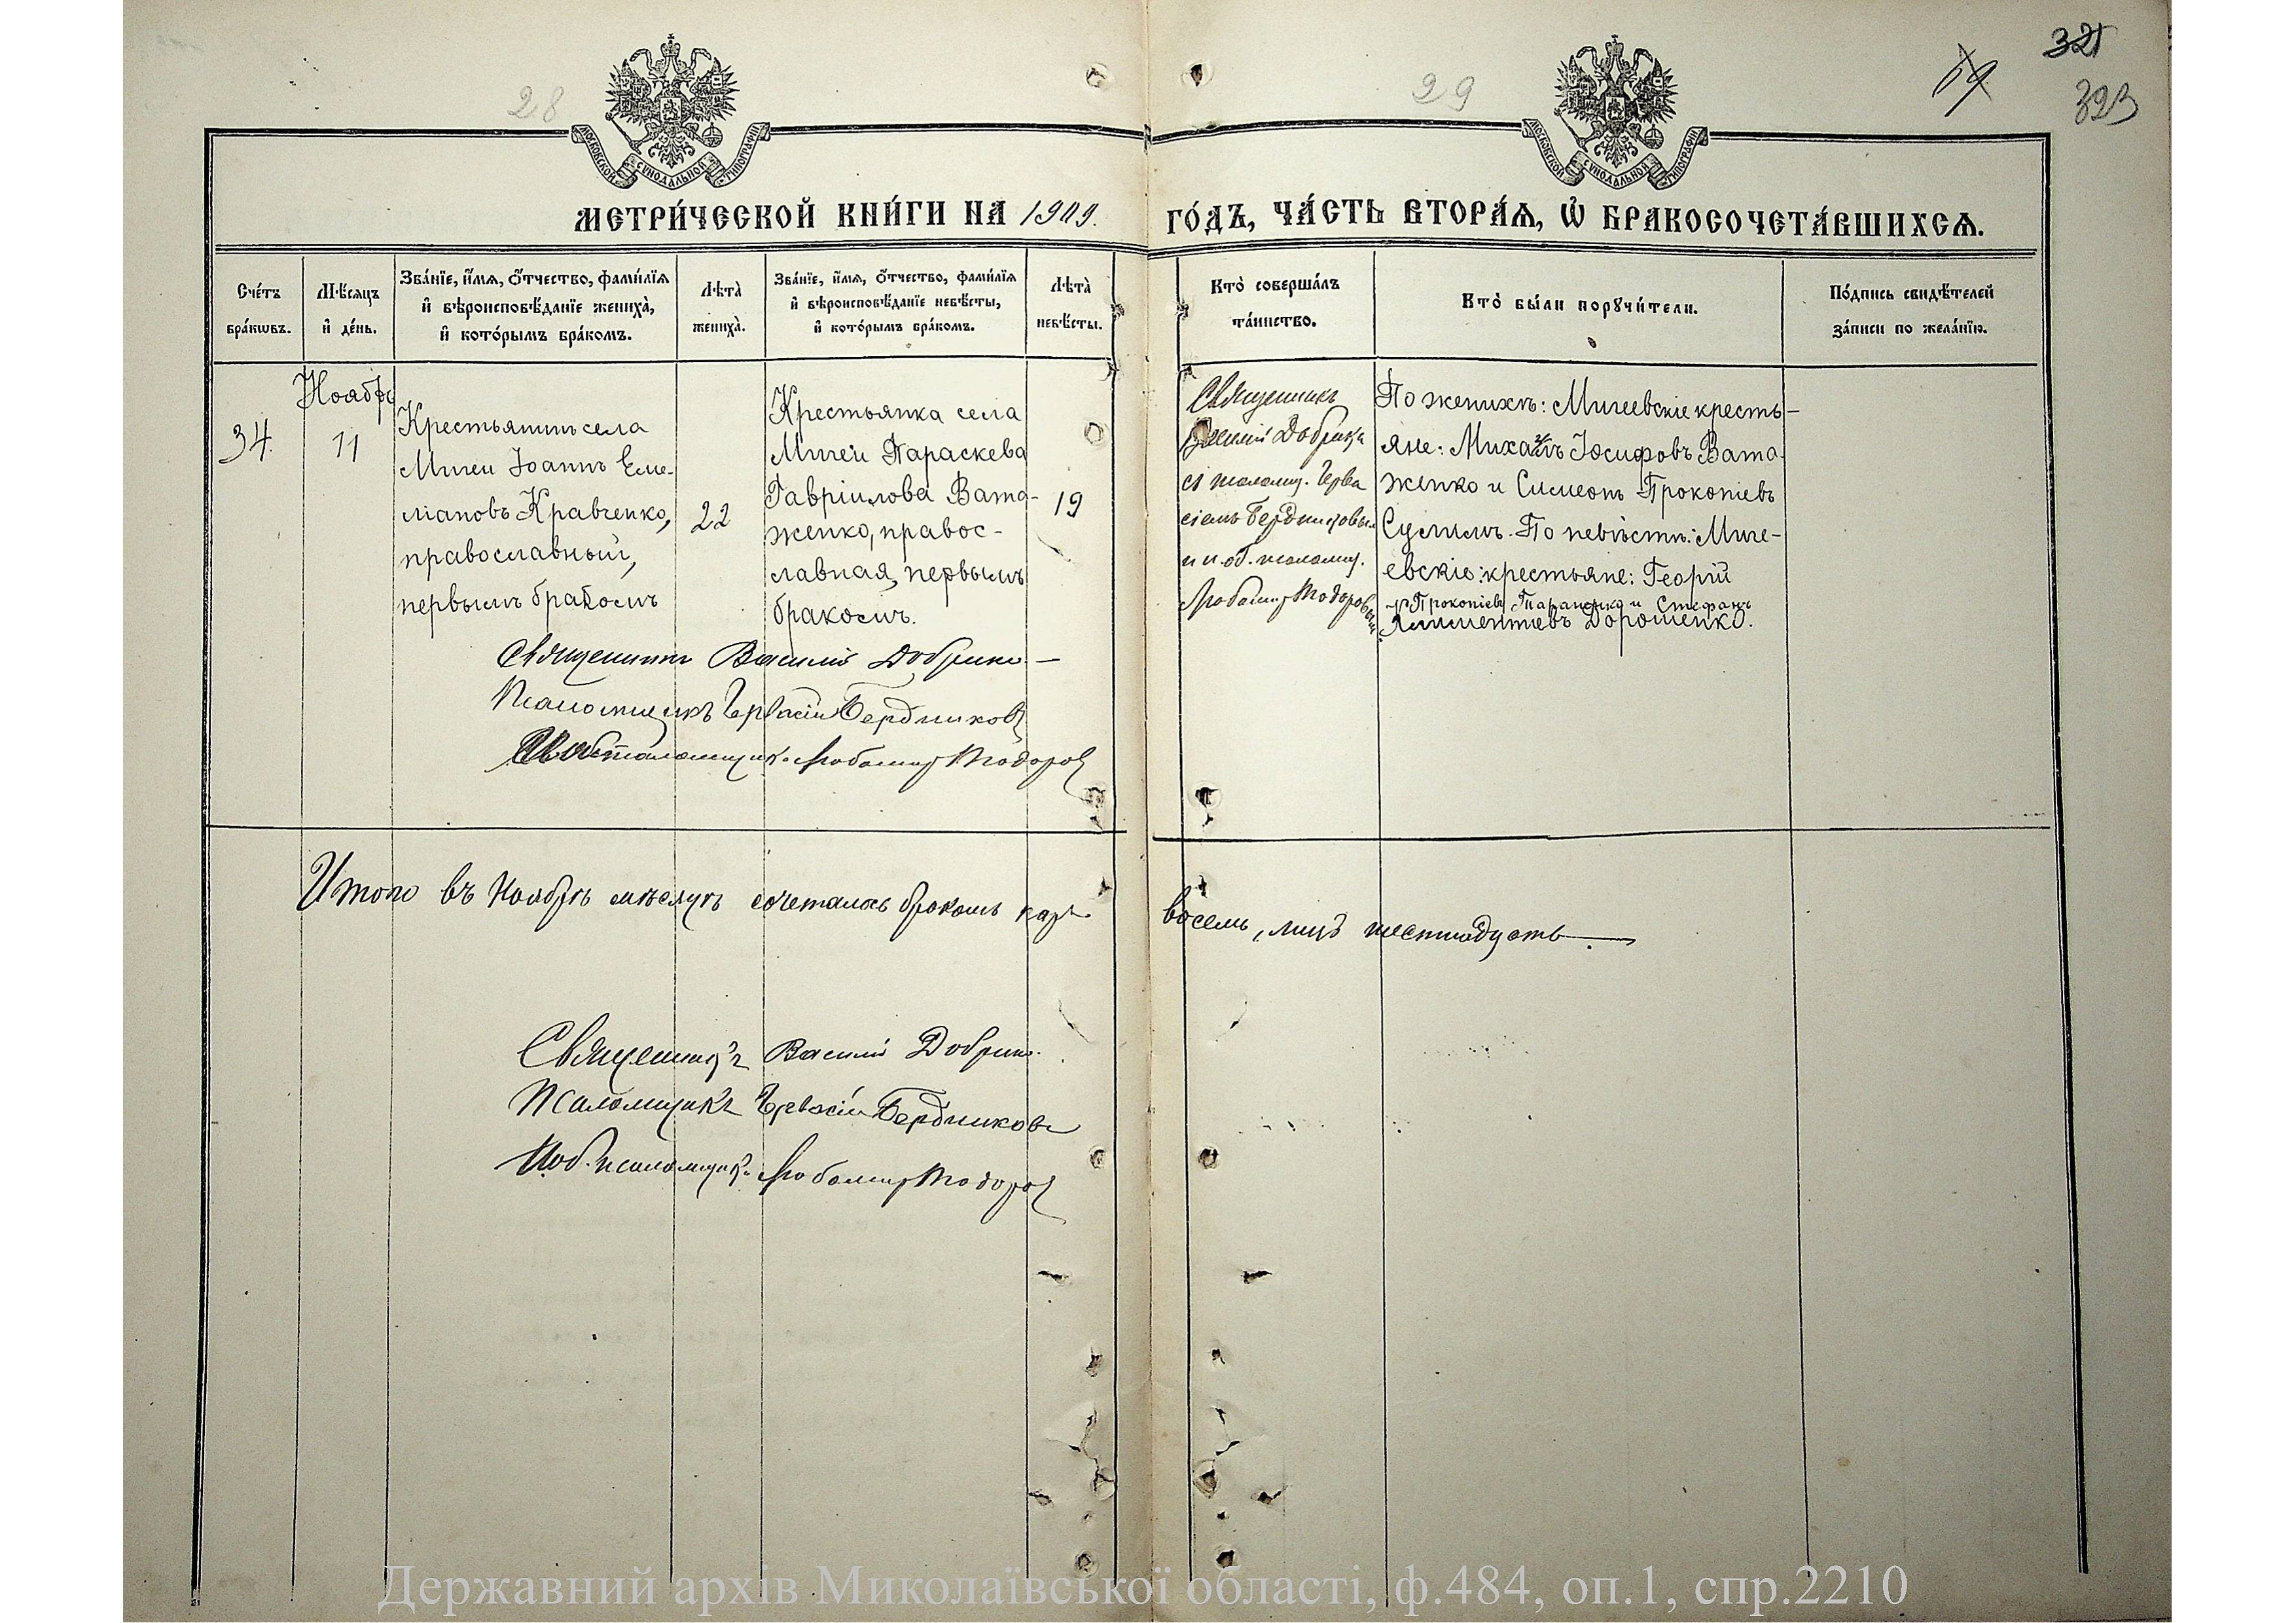 28
29
69
321
323
МОСКОВСКОЙ СѴНОДАЛЬНОЙ ТИПОГРАФІИ
МОСКОВСКОЙ СѴНОДАЛЬНОЙ ТИПОГРАФІИ
МЕТРИ́ЧЕСКОЙ КНИ́ГИ НА 1909.
ГО́ДЪ, ЧА́СТЬ ВТОРА́Ѧ, Ѡ҆ БРАКОСОЧЕТА́ВШИХСѦ.
Сче́тъ
бра́кѡвъ.
Мѣ́сѧцъ
и҆ де́нь.
Зва́нїе, и҆́мѧ, ѻ҆́тчество, фами́лїѧ
и҆ вѣроисповѣ́данїе жениха̀,
и҆ кото́рымъ бра́комъ.
Лѣта̀
жениха̀.
Зва́нїе, и҆́мѧ, ѻ҆́тчество, фами́лїѧ
и҆ вѣроисповѣ́данїе невѣ́сты,
и҆ кото́рымъ бра́комъ.
Лѣта̀
невѣ́сты.
Кто̀ соверша́лъ
та́инство.
Кто̀ бы́ли порꙋчи́тели.
По́дпись свидѣ́телей
за́писи по жела́нїю.
34.
Ноябрь
11
Крестьянинъ села
Мигеи Іоаннъ Еме-
ліановъ Кравченко,
православный,
первымъ бракомъ
22
Крестьянка села
Мигеи Параскева
Гавріилова Вата-
женко, правос-
лавная, первымъ
бракомъ.
19
Священникъ
Василій Добрика
съ псаломщ. Герва
сіемъ Бердниковым
и и. об. псаломщ.
Любомир Тодоровым
По женихѣ: Мигеевскіе кресть-
яне: Михаилъ Іосифовъ Вата-
женко и Симеонъ Прокопіевъ
По невѣстѣ: Миге-
евскіе: крестьяне: Георгій
Прокопіевъ Тараненко и Стефанъ
Климентіевъ Дорошенко.
Священникъ Василій Добрика
Псаломщикъ Гервасій Бердниковъ
псаломщикъ Любомир Тодоров
Итого въ Ноябрѣ мѣсяцѣ сочеталось бракомъ паръ
восемь, лицъ шестнадцать.
Священникъ Василій Добрика
Псаломщикъ Гервасій Бердниковъ
И. об. псаломщик. Любомир Тодоров
Державний архів Миколаївської області, ф.484, оп.1, спр.2210